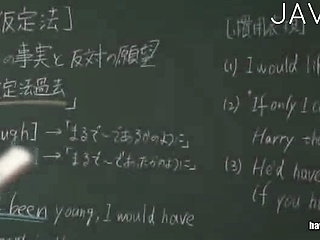 仮定法]
の事実と反対の願望
定法過去」
ugh] →「まるで〜であるかのように」
] →「まるで〜であったかのように」
been young, I would have
(1) I would li
(2) "If only I c
Harry the
(3) He'd have
(if you h
JAV